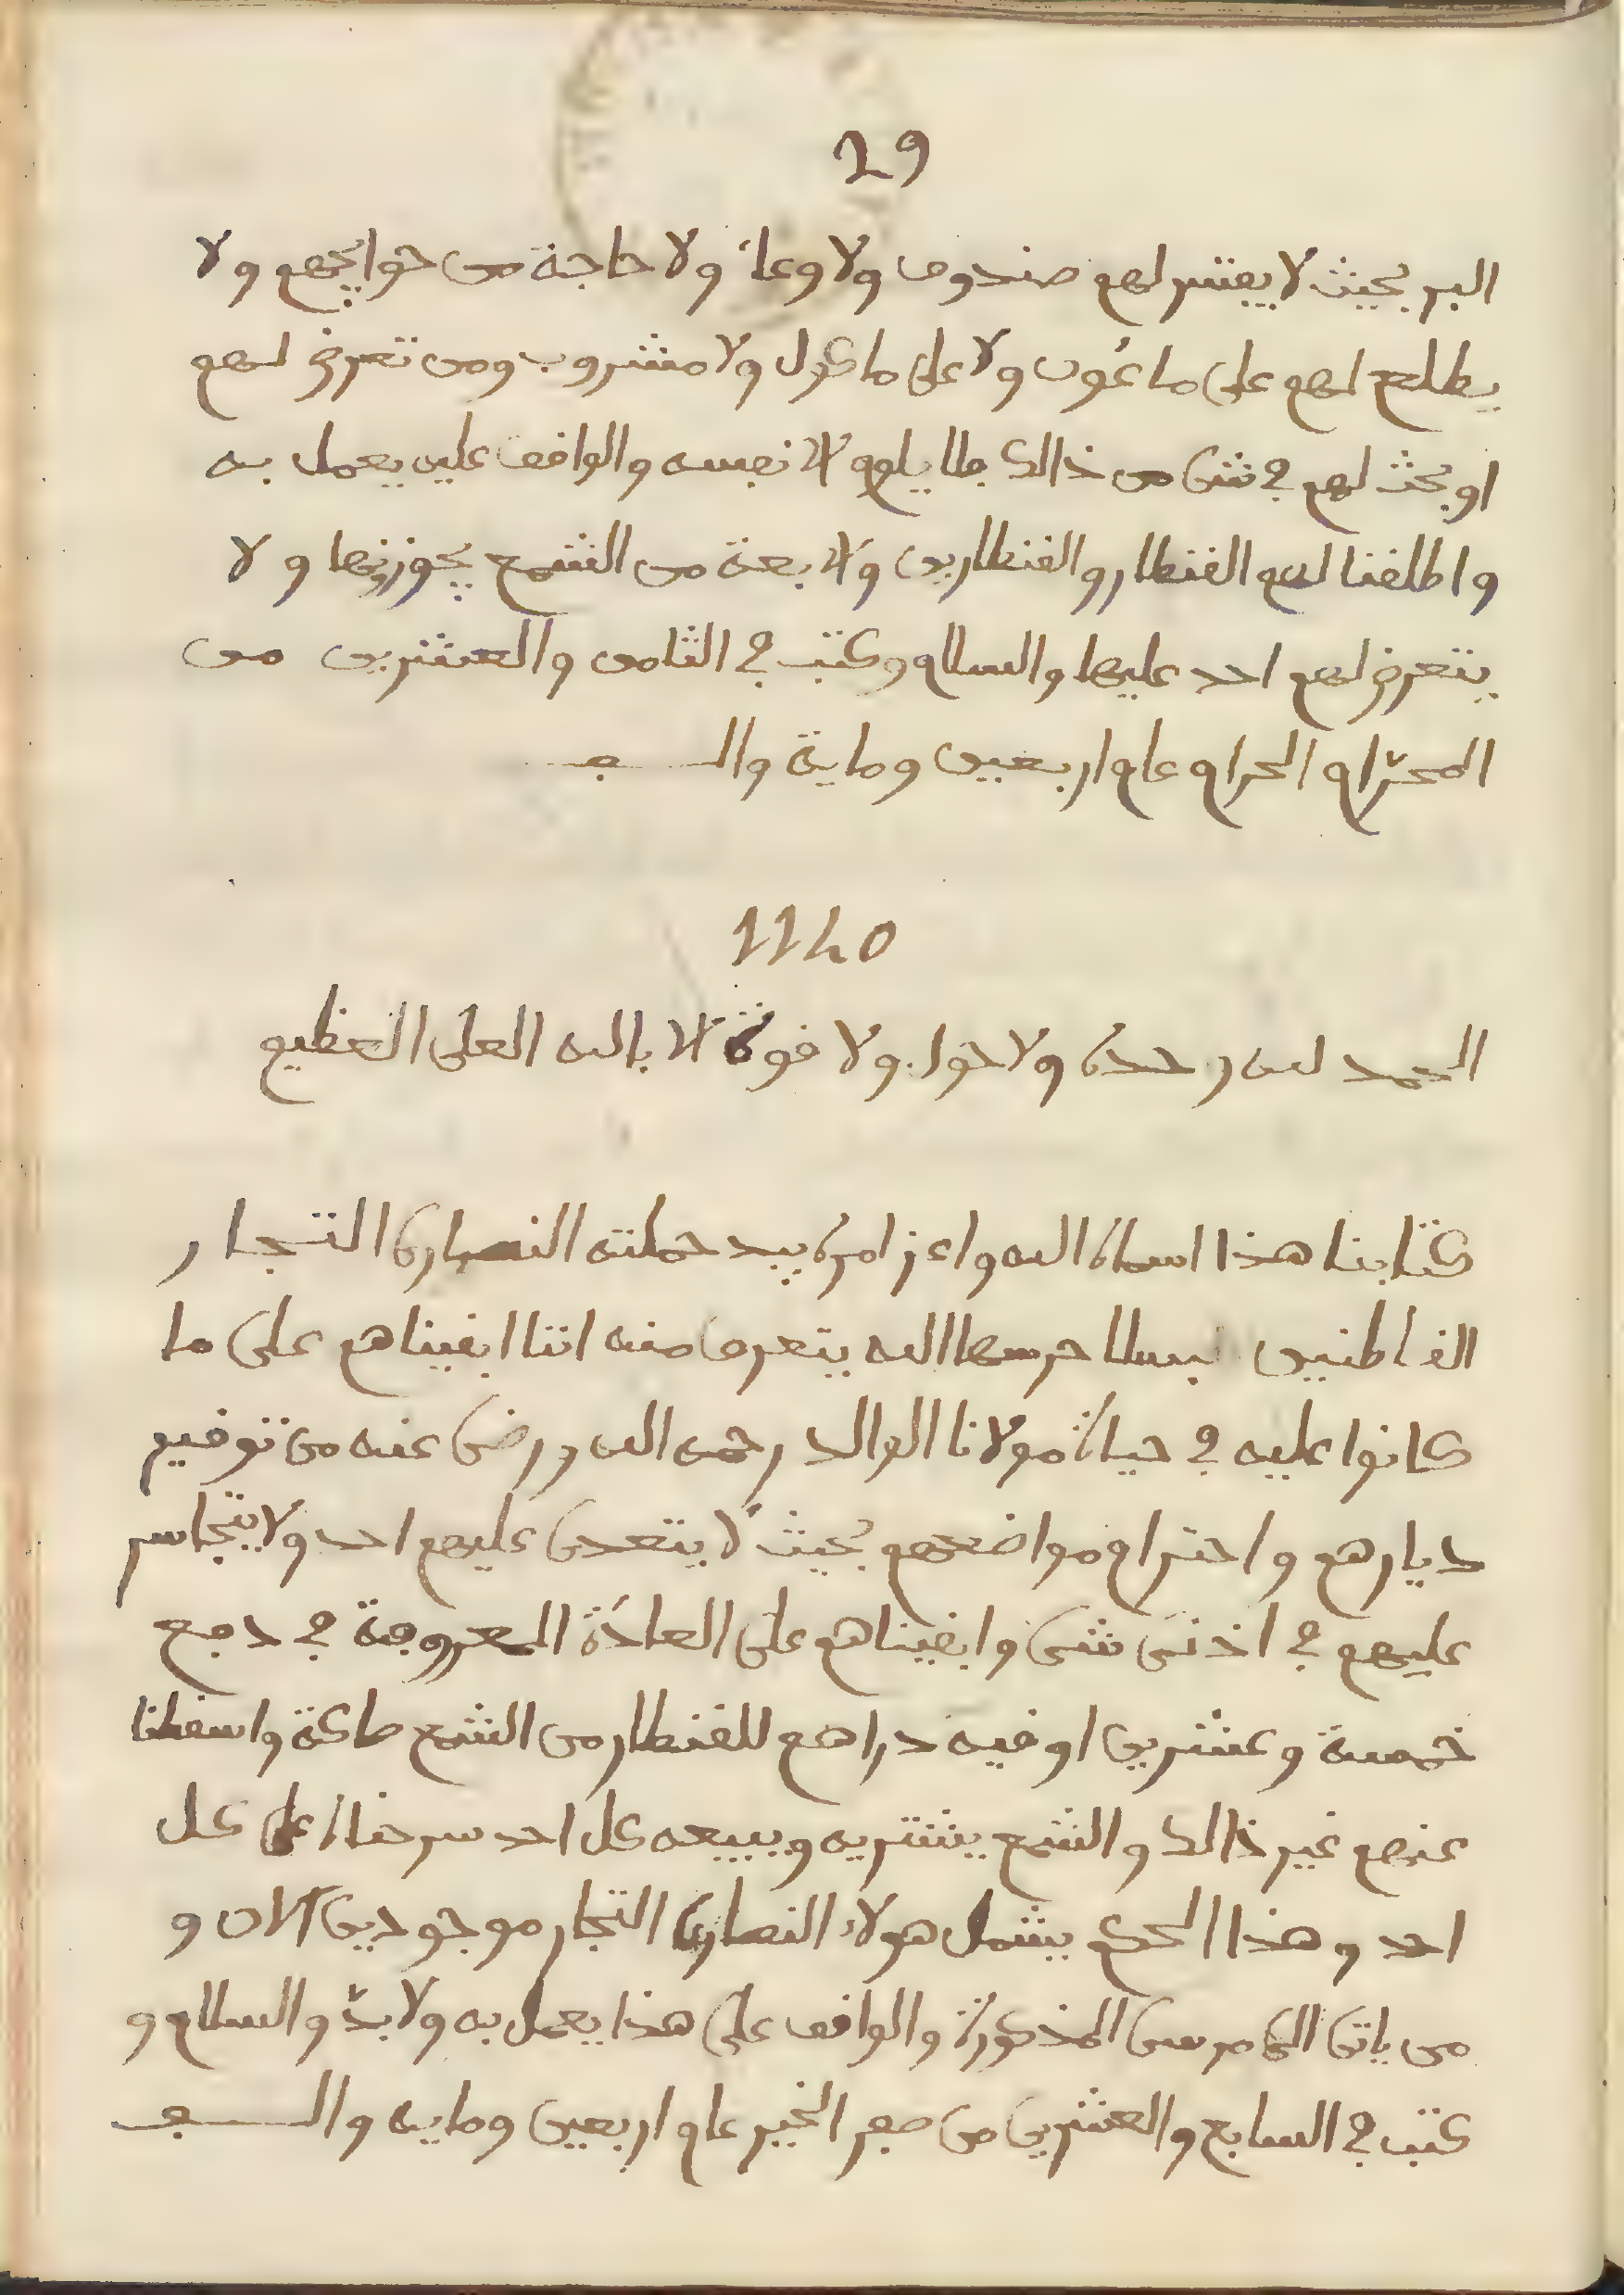 29
البر بحيث لا يفتش لهم صندوق ولا وعاء ولا حاجة من حوايجهم ولا
يطلع لهم على ماعون ولا على ماكول ولا مشروب ومن تعرض لهم
او بحث لهم في شي من ذالك فلا يلوم الا نفسه والواقف عليه يعمل به
واطلقنا لهم القنطار والقنطارين والاربعة من الشمع يجوزونها ولا
يتعرض لهم احد عليها والسلام وكتب في الثامن والعشرين من
المحرام الحرام عام اربعين وماية والف
1140
الحمد لله وحده ولا حول ولا قوة الا بالله العلي العظيم
كتابنا هذا اسماه الله واعز امره بيد حملته النصارى التجار
القاطنين بسلا حرسها الله يتعرف منه اننا ابقيناهم على ما
كانوا عليه في حياة مولانا الوالد رحمه الله ورضى عنه من توقيع
ديارهم واحترام مواضعهم بحيث لا يتعدى عليهم احد ولا يتجاسر
عليهم في اذنى شى وابقيناهم على العادة المعروفة في دفع
خمسة وعشرين اوقيه دراهم للقنطار من الشمع صاكة واسقطنا
عنهم غير ذالك والشمع يشتريه ويبيعه كل احد سرحناه على كل
احد وهذا الحكم يشمل هولاء النصارى التجار موجودين الان و
من ياتى الى مرسى المذكورة والواقف على هذا يعمل به ولا بد والسلام و
كتب في السابع والعشرين من صفر الخير عام اربعين ومايه والف